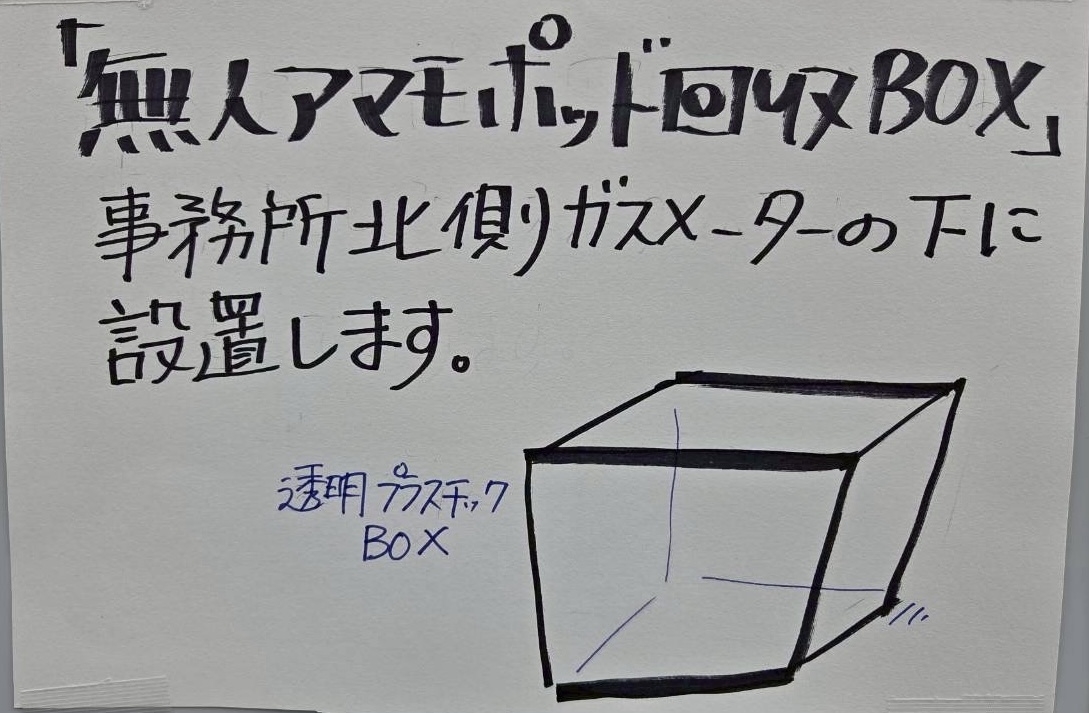 「無人アマモポッド回収BOX」
事務所北側ガスメーターの下に
設置します。
透明プラスチック
BOX